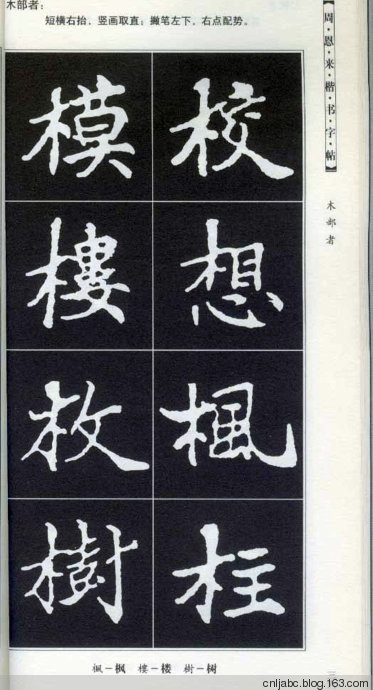 木部者：
短横右抬，竖画取直；撇笔左下，右点配势。
【周·恩·来·楷·书·字·帖】
木部者
校
想
楓
柱
模
樓
枚
樹
楓－枫 樓－楼 樹－树
cnljabc.blog.163.com